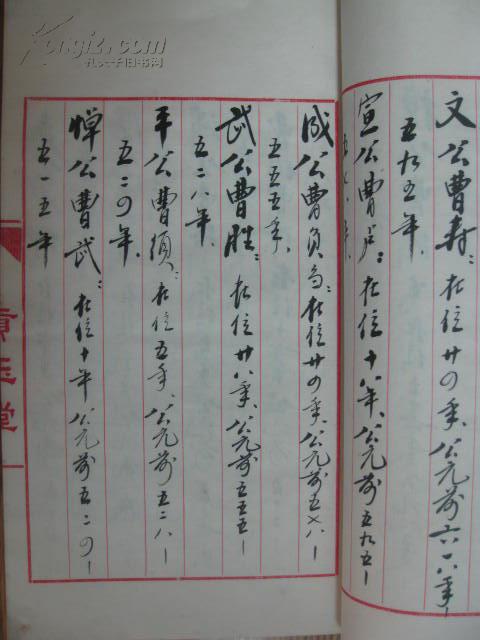 文公曹寿：在位廿四年、公元前六一八年—
五九五年、
宣公曹卢：在位十八年、公元前五九五—
五七八年、
成公曹负刍：在位廿四年、公元前五七八—
五五五年、
武公曹胜：在位廿八年、公元前五五五—
五二八年、
平公曹须：在位五年、公元前五二八—
五二四年、
悼公曹武：在位十年 公元前五二四—
五一五年
玉堂
Kongfz.com
孔夫子旧书网